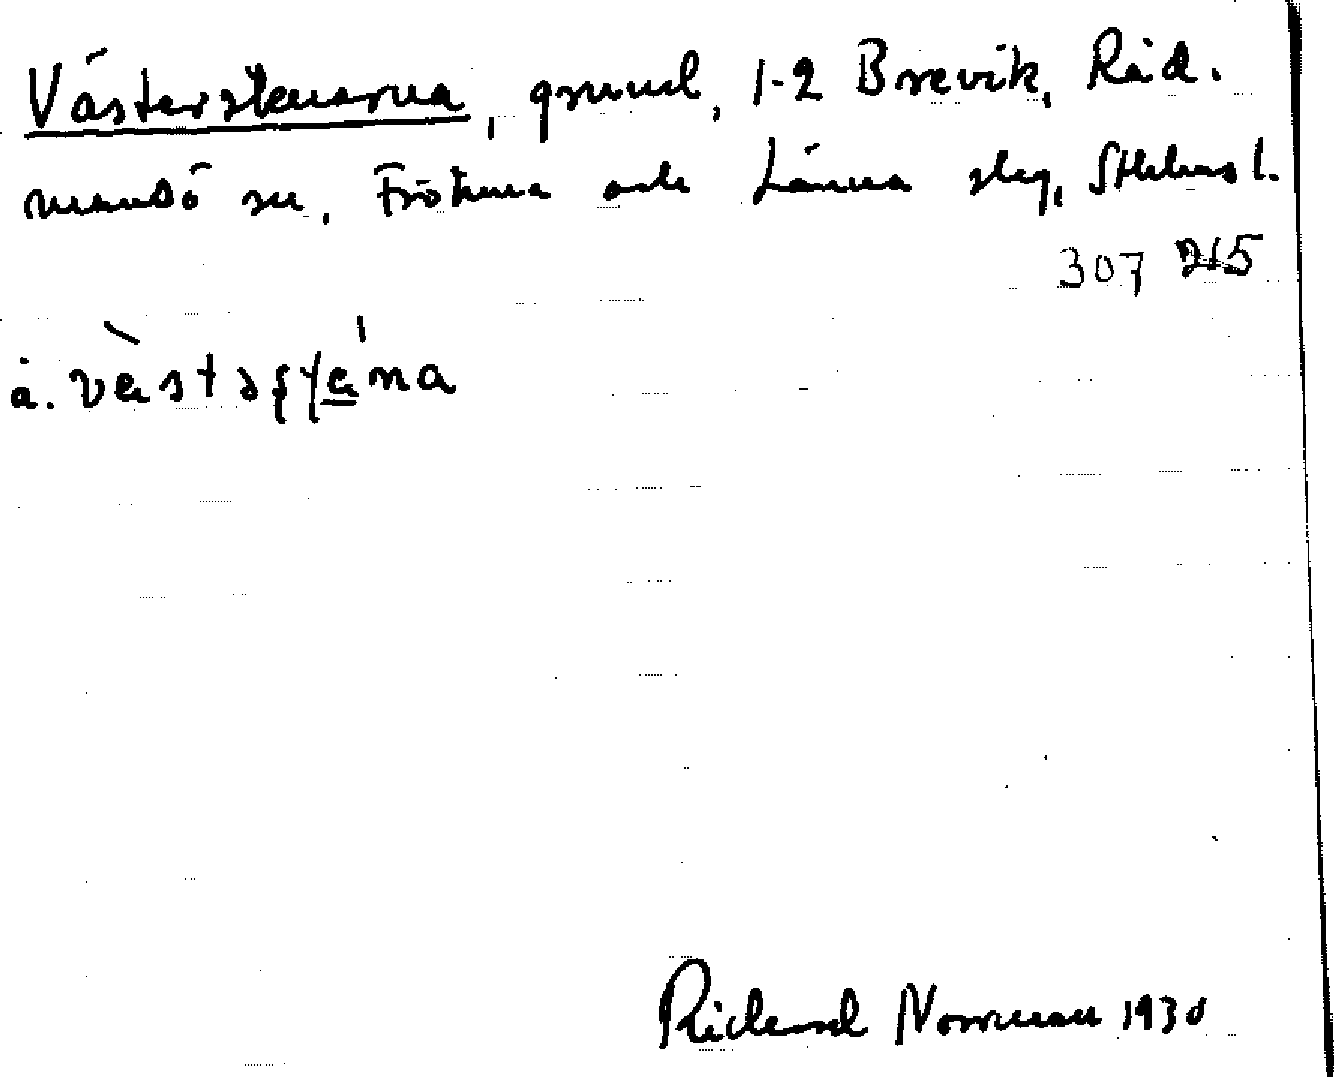 Västerstenarna, grund, 1-2 Brevik, Råd.
mansö sn, Frötuna och Länna slg, Sthlms l.
307
å.
Richard Norrman 1930